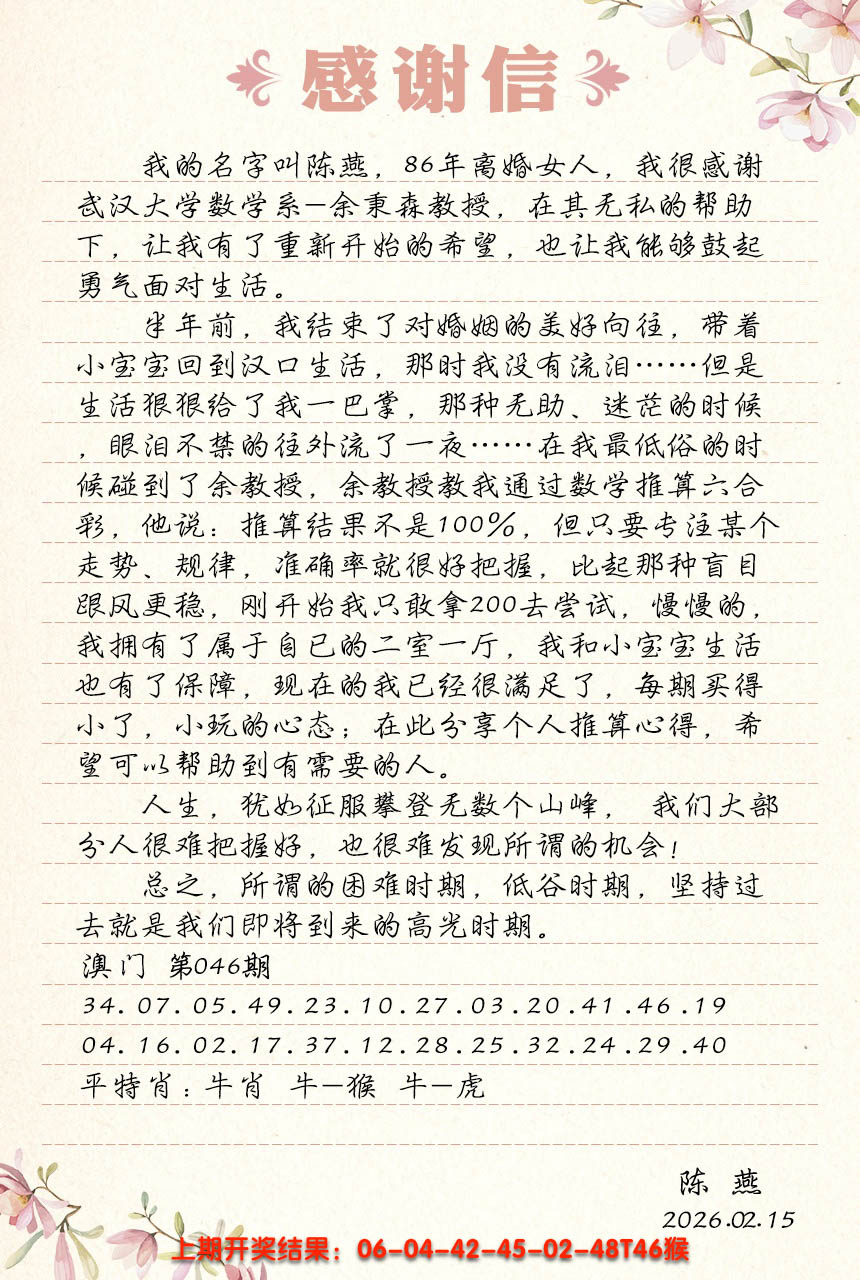 感谢信
我的名字叫陈燕，86年离婚女人，我很感谢
武汉大学数学系—余秉森教授，在其无私的帮助
下，让我有了重新开始的希望，也让我能够鼓起
勇气面对生活。
半年前，我结束了对婚姻的美好向往，带着
小宝宝回到汉口生活，那时我没有流泪……但是
生活狠狠给了我一巴掌，那种无助、迷茫的时候
，眼泪不禁的往外流了一夜……在我最低俗的时
候碰到了余教授，余教授教我通过数学推算六合
彩，他说：推算结果不是100%，但只要专注某个
走势、规律，准确率就很好把握，比起那种盲目
跟风更稳，刚开始我只敢拿200去尝试，慢慢的，
我拥有了属于自已的二室一厅，我和小宝宝生活
也有了保障，现在的我已经很满足了，每期买得
小了，小玩的心态；在此分享个人推算心得，希
望可以帮助到有需要的人。
人生，犹如征服攀登无数个山峰， 我们大部
分人很难把握好，也很难发现所谓的机会！
总之，所谓的困难时期，低谷时期，坚持过
去就是我们即将到来的高光时期。
澳门 第046期
34.07.05.49.23.10.27.03.20.41.46.19
04.16.02.17.37.12.28.25.32.24.29.40
平特肖：牛肖 牛—猴 牛—虎
陈 燕
2026.02.15
上期开奖结果：06-04-42-45-02-48T46猴